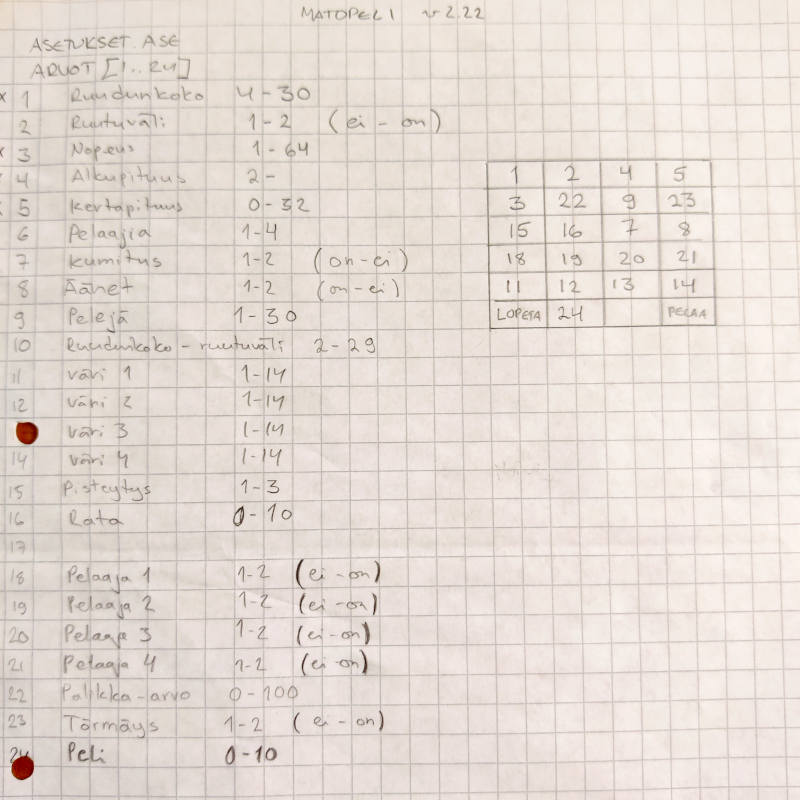 MATOPELI v 2.22
ASETUKSET.ASE
ARVOT [1..24]
x 1 Ruudunkoko 4-30
2 Ruutuväli 1-2 (ei - on)
x 3 Nopeus 1-64
x 4 Alkupituus 2-
x 5 Kertapituus 0-32
6 Pelaajia 1-4
7 Kumitus 1-2 (on-ei)
8 Äänet 1-2 (on-ei)
9 Pelejä 1-30
10 Ruudunkoko - ruutuväli 2-29
11 väri 1 1-14
12 väri 2 1-14
väri 3 1-14
14 väri 4 1-14
15 Pisteytys 1-3
16 Rata 0-10
17
18 Pelaaja 1 1-2 (ei-on)
19 Pelaaja 2 1-2 (ei-on)
20 Pelaaja 3 1-2 (ei-on)
21 Pelaaja 4 1-2 (ei-on)
22 Palikka-arvo 0-100
23 Törmäys 1-2 (ei-on)
24 Peli 0-10
1 2 4 5
3 22 9 23
15 16 7 8
18 19 20 21
11 12 13 14
LOPETA 24 PELAA